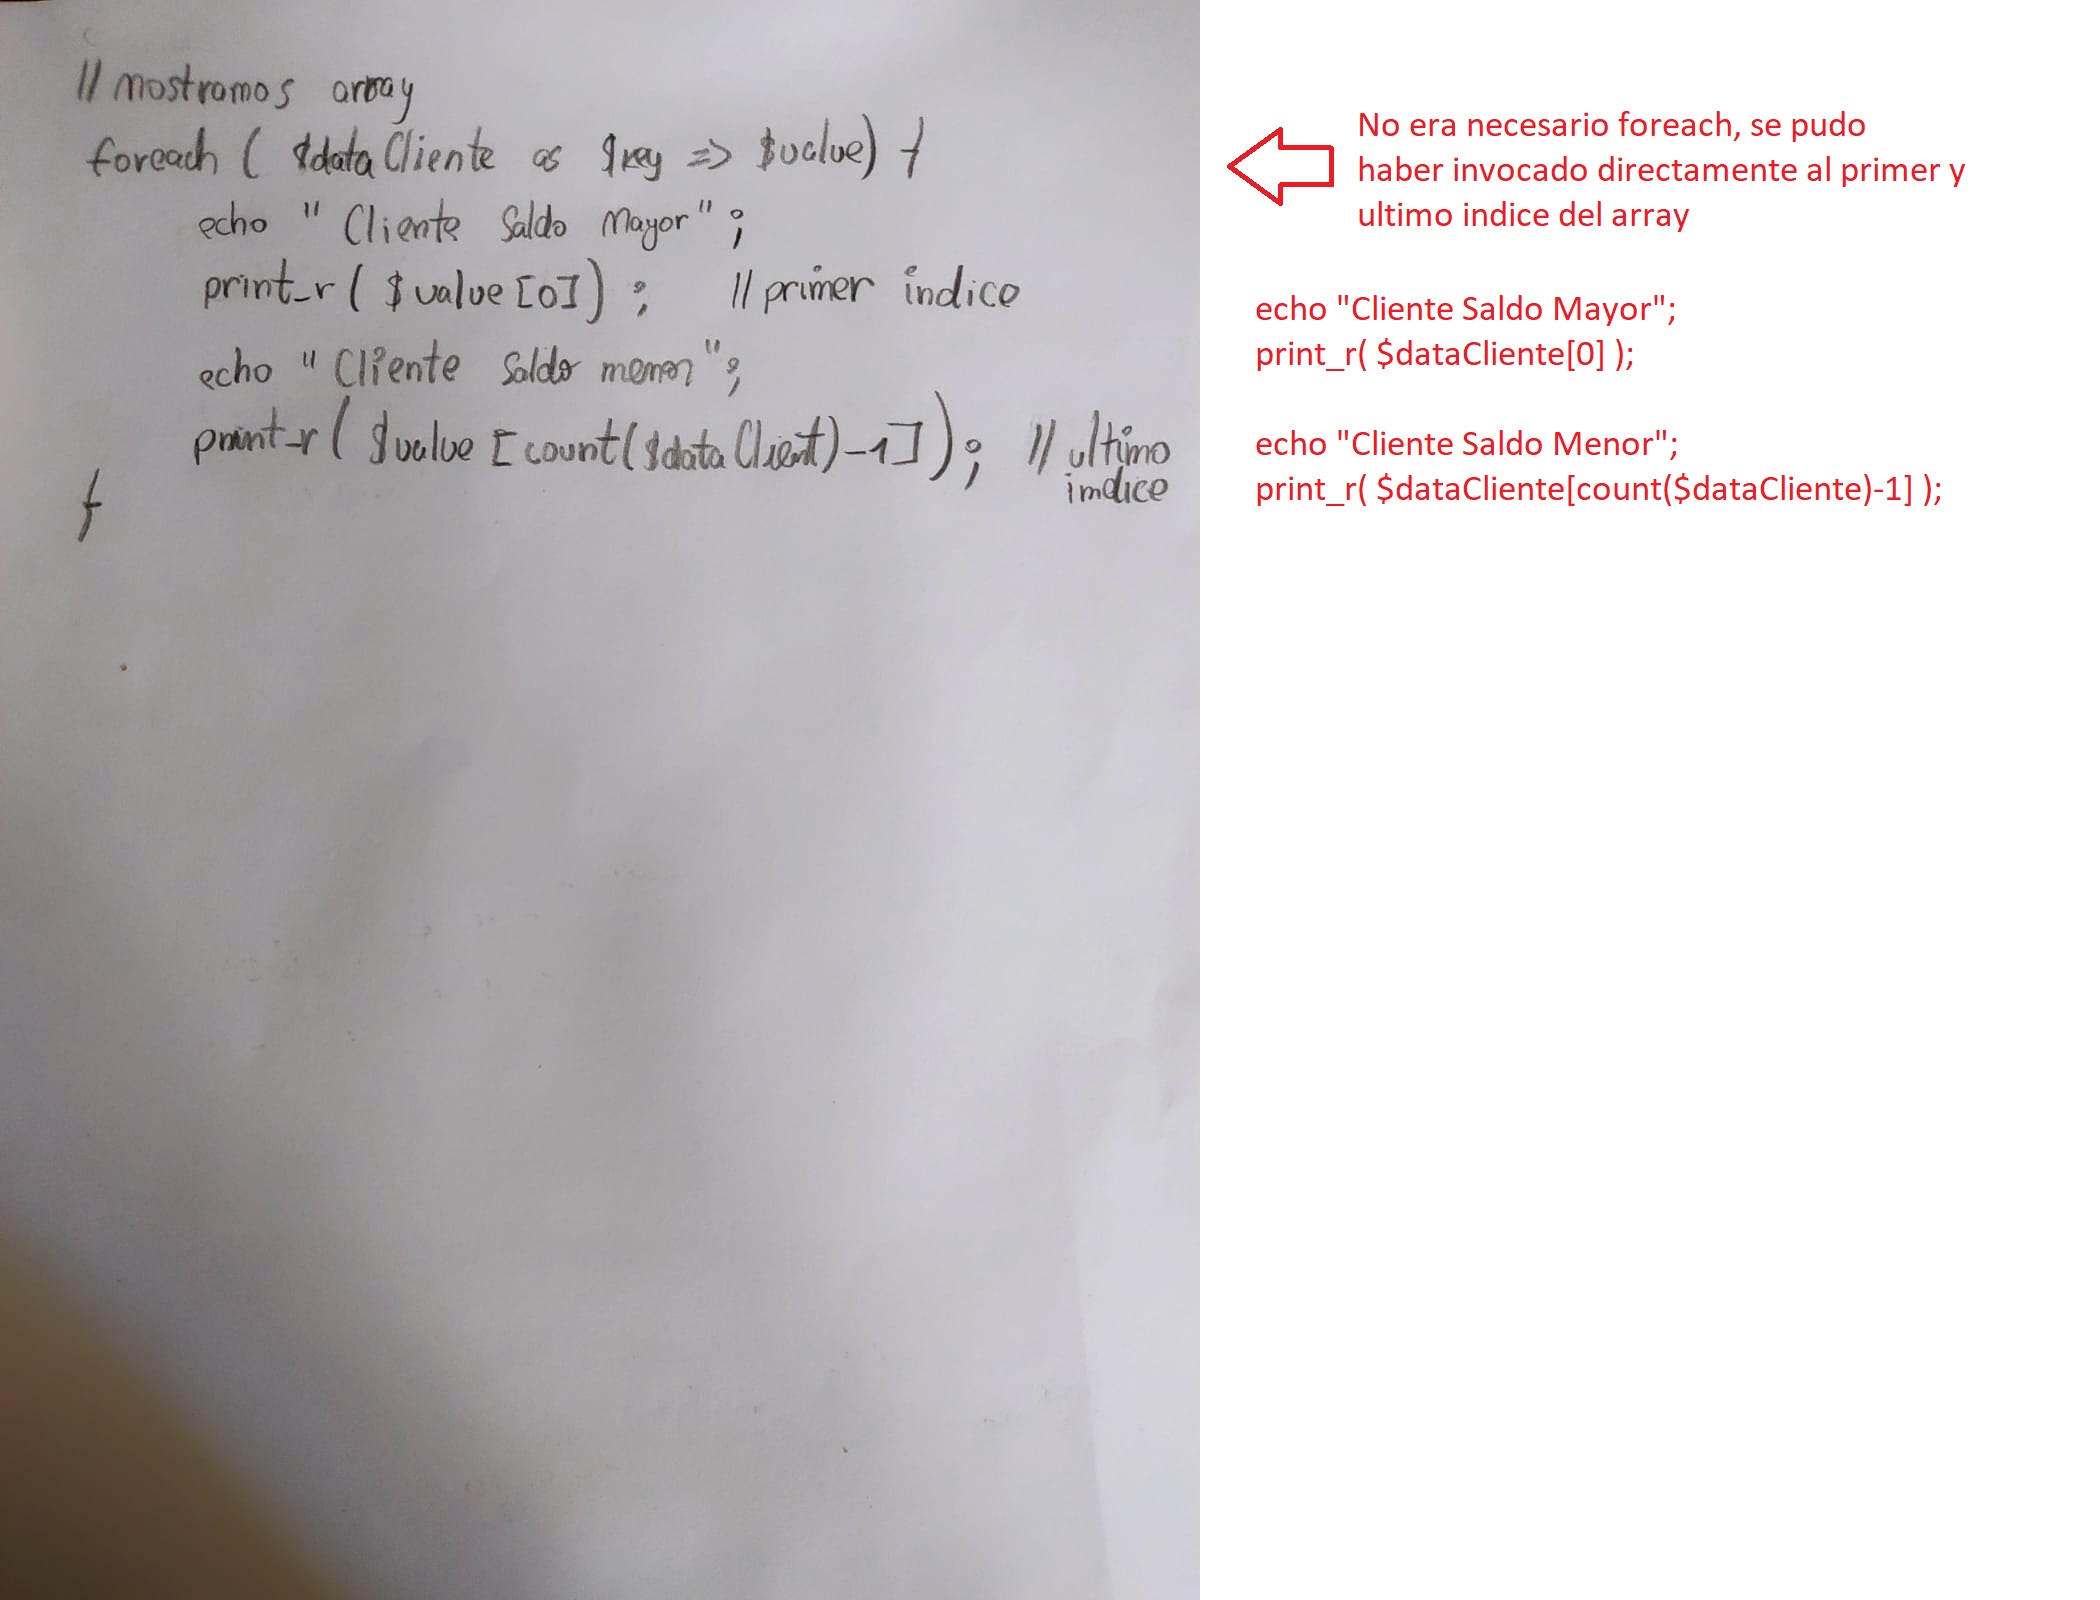 // mostramos array
foreach ( $dataCliente as $key => $value) {
echo " Cliente Saldo Mayor" ;
print_r ( $value[0]) ; // primer indice
echo " Cliente Saldo menor";
print_r ( $value [count($dataClient)-1]); // ultimo
indice
}
No era necesario foreach, se pudo
haber invocado directamente al primer y
ultimo indice del array
echo "Cliente Saldo Mayor";
print_r( $dataCliente[0] );
echo "Cliente Saldo Menor";
print_r( $dataCliente[count($dataCliente)-1] );